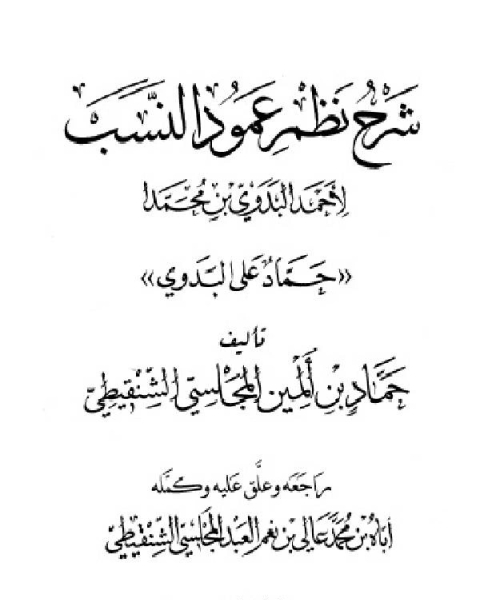 شَرْحُ نَظْمِ عَمُودِ النَّسَبِ
لِأَحْمَدَ البَدَوِيِّ بْنِ مُحَمَّدَا
«حَمَّادٌ عَلَى البَدَوِي»
تأليف
حَمَّادِ بْنِ أَلْمِينِ المَجْلِسِيِّ الشِّنْقِيطِيِّ
راجَعَه وعلَّق عَليه وكمَّله
اباهُ بْنُ مُحَمَّد عَالِي بْنِ نعمَ العَبْد المَجْلِسِيِّ الشِّنْقِيطِيِّ